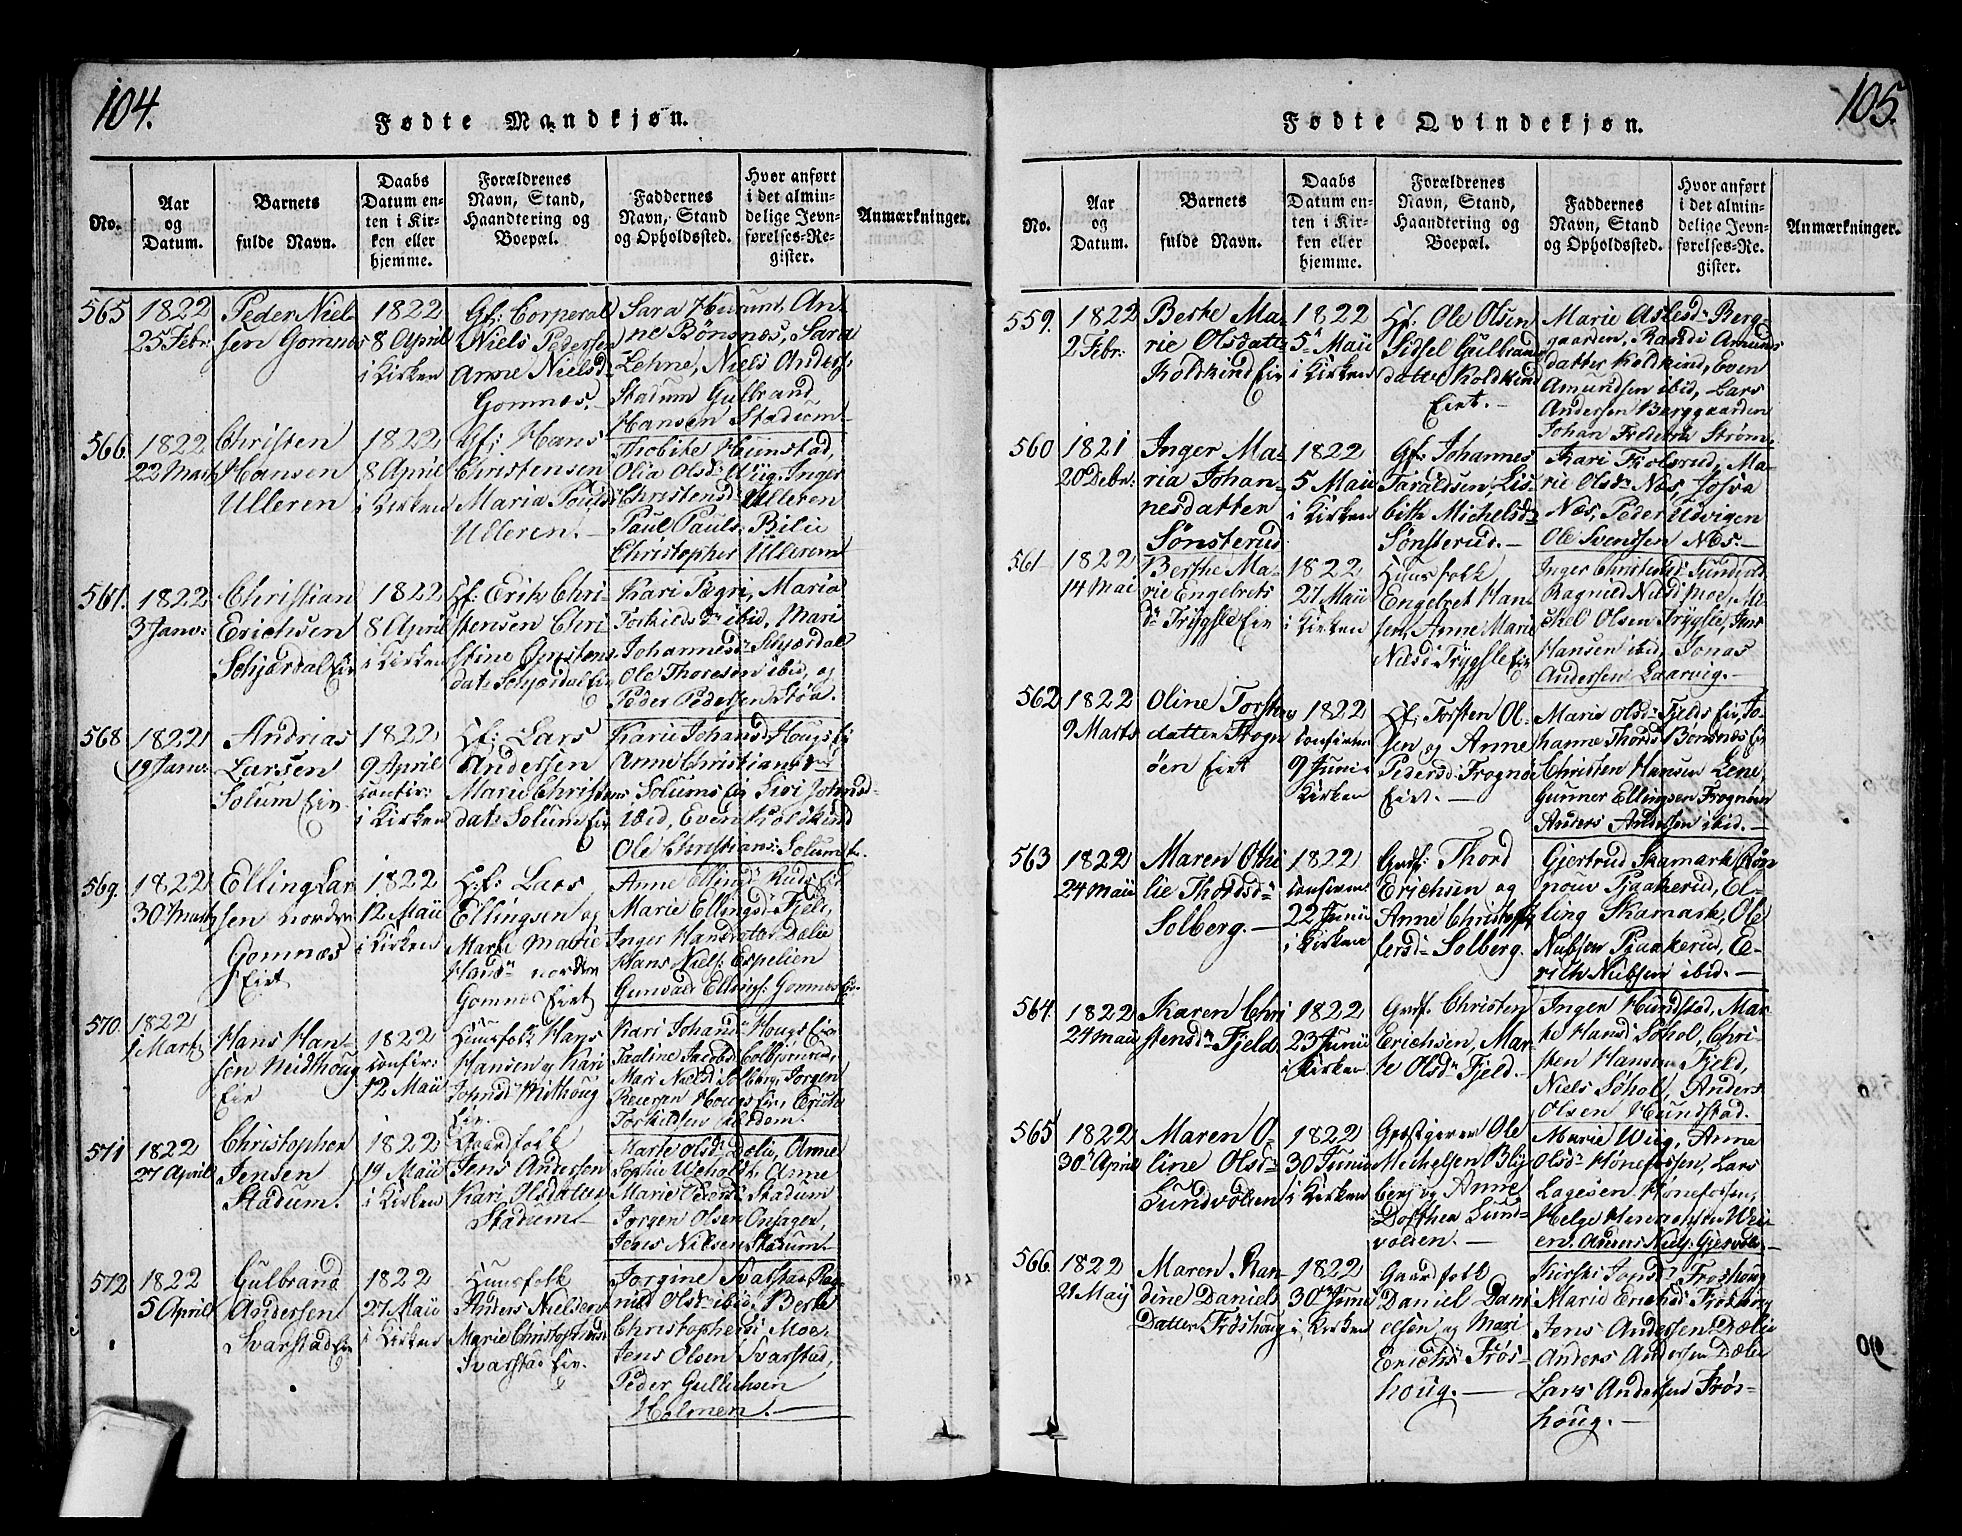 104.
Fødte Mandkjøn.
No.
Aar
og
Datum.
Barnets
fulde Navn.
Daabs
Datum en-
ten i Kir-
ken eller
hjemme.
Forældrenes
Navn, Stand,
Haandtering og
Boepæl.
Faddernes
Navn, Stand
og Opholdssted.
Hvor anført
i det almin-
delige Jevn-
førelses-Re-
gister.
Anmærkninger.
565
1822
25 Febr:
Peder Niel-
sen Gomnes
1822
8 April
i Kirken
Gf: Corperal
Niels Pedersen
Anne Nielsd
Gomnes.
Sara Hurum, An-
ne Bönsnæs, Sara
Lehne, Niels Anders:
Stadum Gulbrand
Hansen Stadum
566.
1822
22 Marts
Christen
Hansen
Ulleren
1822
8 April
i Kirken
Gf: Hans
Christensen
Maria Pouls
Ulleren.
Olia Olsd: Wiig, Inger
Christensd: Ulleren
Paul Pauls: Bilie
Christopher Ulleren
567.
1822
3 Janv:
Christian
Erichsen
Schjærdal Eie
1822
8 April
i Kirken
Hf: Erik Chri-
stensen Chri-
stine
dat: Schjærdal Eie
Kari Maria
Torkilds ibid, Mari
Johannesd: Schjærdal
Ole Thoresen ibid, og
Peder Pedersen Støa.
568
1822
19 Janv:
Andrias
Larsen
Solum Eie.
1822
9 April
confir:
i Kirken
Hf: Lars
Andersen
Marie Christian
dat: Solum Eie
Karie Johansd: Hougs Ei
Anne Christians
Solums Ei Siri Johnsd-
ibid, Even Koldkind
Ole Christians: Solum Ei.
569.
1822
30 Marts
Elling Lar
sen nordre
Gomnæs
Eiet
1822
12 Maii
i Kirken
Hf: Lars
Ellingsen og
Marte Marie
Hansd: nordre
Gomnes Eiet
Anne Ellingsd: Ruds Eie
Marie Ellingsd: Fjeld,
Inger Hansdatter Dælie
Hans Niels: Espelien
Gunvald Ellings: Gomnes Eie
570.
1822
1 Marts
Hans Han-
sen Midthoug
Eie
1822
confir:
12 Maii
Huusfolk Hans
Hansen og Kari
Johnsd: Midthoug
Eie.
Kari Johansd: Hougs Eie
Pauline Jacobsd:
Mari Nielsd: Solberg, Jorgen
Reiersen Hougs Eie,
Torkildsen
571
1822
27 April
Christopher
Jensen
Stadum.
1822
19 Maii
i Kirken
Gaardfolk
Jens Andersen
Kari Olsdatter
Stadum
Marte Olsd: Dælie, Anne
Sophie Anne
Marie Stadum
Jorgen Olsen Onsager,
Jens Nilsen Stadum
572
1822
5 April
Gulbrand
Andersen
Svarstad Eie
1822
27 Maii
i Kirken
Huusfolk
Anders Nielsen
Marie Christophersd:
Svarstad Eie.
Jorgine Svarstad, Rag-
nild Olsd: ibid, Berte
Christophersd: Moe,
Jens Olsen Svarstad,
Peder Gullichsen
Holmen.
105.
Fødte Qvindekjøn.
No.
Aar
og
Datum.
Barnets
fulde Navn.
Daabs
Datum en-
ten i Kir-
ken eller
hjemme.
Forældrenes
Navn, Stand,
Haandtering og
Boepæl.
Faddernes
Navn, Stand
og Opholdssted.
Hvor anført
i det almin-
delige Jevn-
førelses-Re-
gister.
Anmærkninger.
559.
1822
2 Febr:
Berte Ma-
rie Olsdatter
Koldkind Eie
1822
5 Maii
i Kirken
Hf. Ole Olsen
Sidsel Gulbrand
datter Koldkind
Eiet.
Marie Aslesd: Berg-
gaarden, Randi Amunds
datter Koldkind, Even
Amundsen ibid, Lars
Andersen Berggaarden
Johan Fredrik Strøm
560
1821
20 Debr:
Inger Ma-
ria Johan-
nesdatter
Sønsterud
1822
5 Maii
i Kirken
Gf: Johannes
Taraldsen, Lis-
beth Michelsd:
Sønsterud.
Kari Fjolsrud, Ma-
rie Olsd: Næs, Josva
Næs, Peder Udvigen
Ole Svendsen Næs.
561
1822
14 Mai
Berthe Ma-
rie Engelbrets
d: Trygsle Eie
1822
27 Maii
i Kirken
Huusfolk
Engelbret Han-
sen, Anne Marie
Nielsd: Trygsle Eie
Inger Christensd: Sundvold
Ragnild Nielsd: Moe, Mi-
ckel Olsen Trygsle,
Hansen ibid, Jonas
Andersen Laarvig.
562
1822
9 Marts
Oline Torsten
datter Frogn
öen Eiet
1822
confirm
9 Junii
Kirken
Hf: Torsten Ol-
sen og Anne
Pedersd: Frognö
Eiet.
Marie Olsd: Fjelds Eie, Jo-
hanne Thords: Bonsnæs Eie
Christen Hansen Lene,
Gunner Ellingsen Frognöen
Anders Andersen ibid.
563
1822
24 Maii
Maren Othi
lie Thordsd:
Solberg.
1822
confirm
22 Junii
i Kirken
Grdf: Thord
Erichsen og
Anne Christoff-
fersd: Solberg.
Gjertrud Skamark, Røn
nouv Pjaakerud, El-
ling Skamark, Ole
Nielsen Pjaakerud, E-
rich Nielsen ibid.
564.
1822
24 Maii
Karen Chri
stensd: Fjeld
1822
23 Junii
i Kirken
Grdf. Christen
Erichsen, Mar-
te Olsd: Fjeld.
Inger Hundstad, Mar-
te Hansd: Søhol, Chri-
sten Hansen Fjeld,
Niels Søhol, Anders
Olsen Hundstad.
565
1822
30 April
Maren O-
line Olsd:
Sundvolden
1822
30 Junii
i Kirken
Gjestgever Ole
Michelsen Bly
berg og Anne
Dorthea Sund-
volden.
Marie Wiig, Anne
Olsd: Hönefossen, Lars
Lagesen Hönefossen,
Helge
en. Anders Niels: Gjesvold
566.
1822
21 Maij
Maren Ran-
dine Daniels
Datter Fröshoug
1822
30 Juni
i Kirken
Gaardfolk
Daniel Dani
elsen og Mari
Erichsd: Frös-
houg.
Kirsti Fröshoug
Marie Erichsd: Fröshoug
Jens Andersen Dælie
Anders Andersen Dælie
Lars Andersen Frös-
houg.